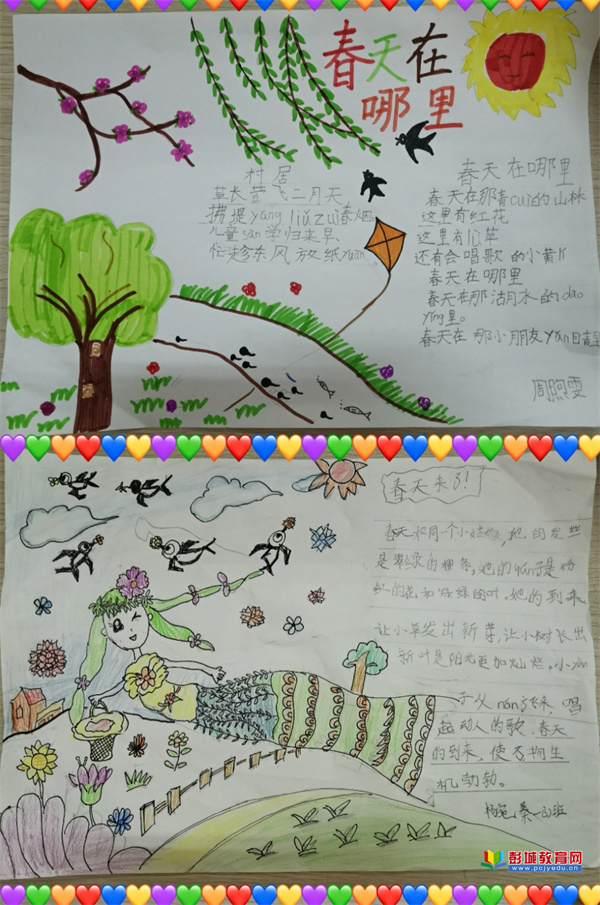 春天在
哪里
村居
草长莺飞二月天
拂堤yang liǔ zuì春烟
儿童sàn学归来早
忙趁东风放纸yuān
春天在哪里
春天在那青cuì的山林
这里有红花
这里有lǜ草
还有会唱歌的小黄
春天在哪里
春天在那湖月水的dao
yǐng里。
春天在那小朋友yǎn目青里
周煦雯
春天来了!
春天如同一个小姑娘,她的发丝
是翠绿的柳条,她的
红的花和绿绿的叶。她的到来
让小草发出新芽,让小树长出
新叶是阳光更加灿烂。小yàn
子从nán方飞来,唱
起动人的歌。春天
的到来,使
机勃勃。
彭城教育网
www.pcjyedu.cn